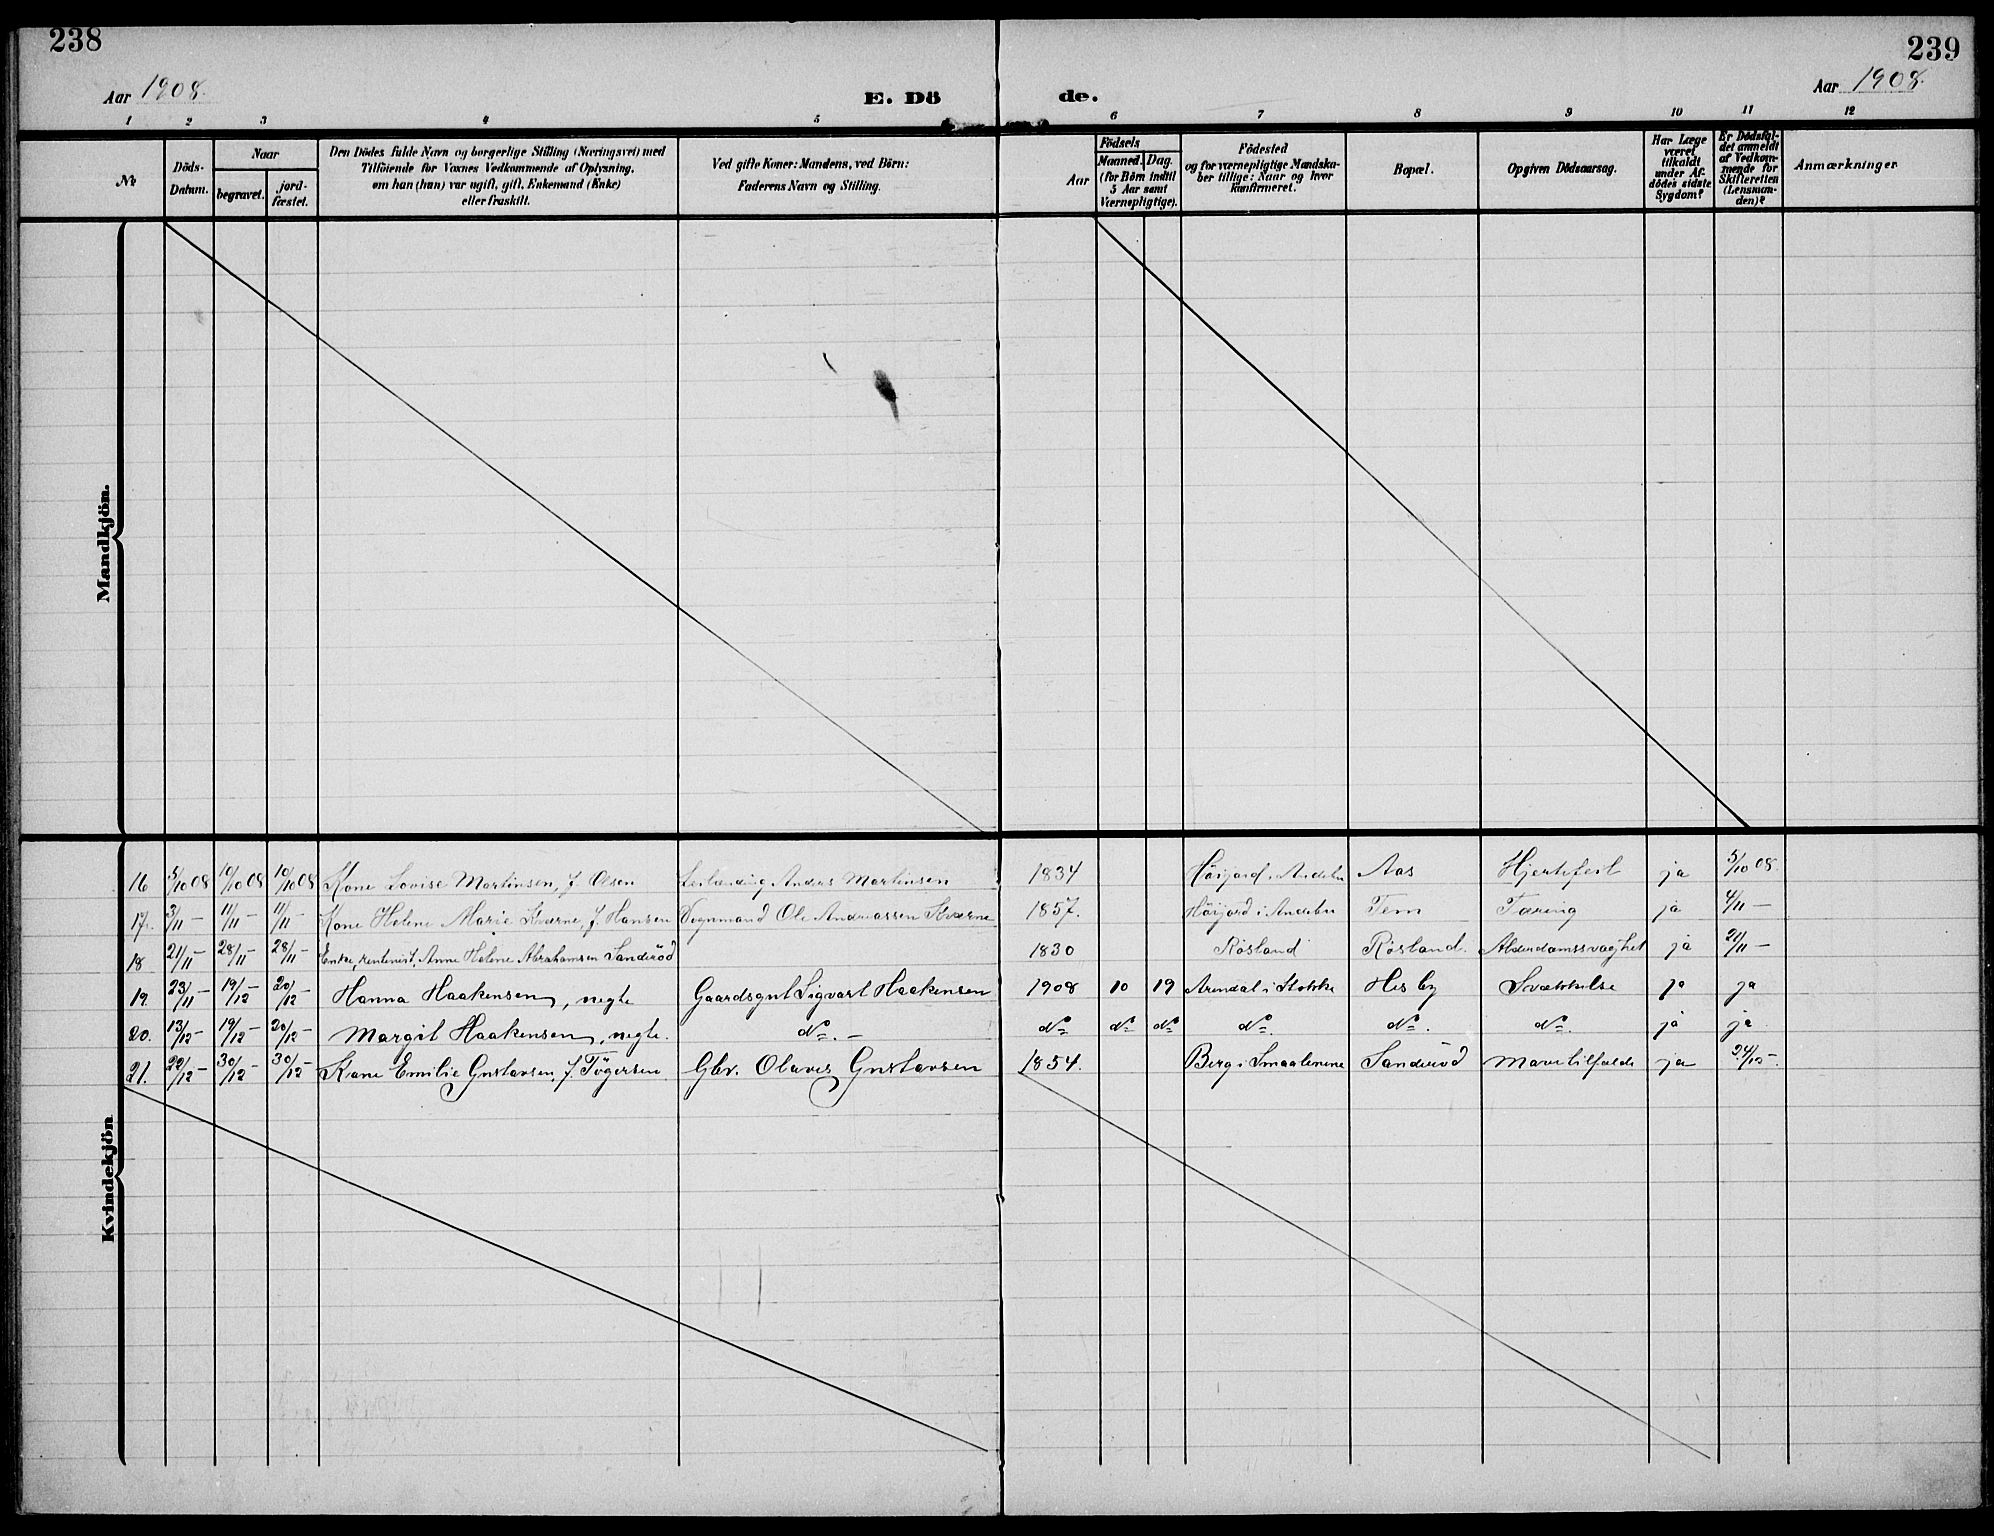 238
239
Aar 1908.
E. Dö
de.
Aar 1908.
1 2 3 4 5 6 7 8 9 10 11 12
No
Döds-Datum.
Naar
begravet.
jord-fæstet.
Den Dödes fulde Navn og borgerlige Stilling (Næringsvei) med
Tilföiende for Voxnes Vedkommende af Oplysning,
om han (hun) var ugift, gift, Enkemand (Enke)
eller fraskilt.
Ved gifte Koner: Mandens, ved Börn:
Faderens Navn og Stilling.
Födsels
Aar
Maaned. Dag.
(for Börn indtil
5 Aar samt
Værnepligtige).
Födested
og for værnepligtige Mandska-
ber tillige: Naar og hvor
konfirmeret.
Bopæl.
Opgiven Dödsaarsag.
Har Læge
været
tilkaldt
under Af-
dödes sidste
Sygdom?
Er Dödsfal-
det anmeldt
af Vedkom-
mende for
Skifteretten
(Lensman-
den)?
Anmærkninger.
Mandkjön.
Kvindekjön
16 5/10 08 10/10 08 10/10 08 Kone Lovise Martinsen, f. Olsen Leilænding Anders Martinsen 1834 Höijord i Andebu Aas Hjertefeil ja 5/10 08.
17. 3/11 – 11/11 – 11/11 – Kone Helene Marie Kværne, f. Hansen Vognmand Ole Andreassen Kværne 1857. Höijord i Andebu Tem Tæring ja 4/11 –
18 21/11 – 28/11 – 28/11 – Enke, rentenist, Anne Helene Abrahamsen Sanderöd 1830 Röisland Röisland. Alderdomssvaghet ja 21/11 –
19. 23/11 – 19/12 – 20/12 – Hanna Haakensen, uegte Gaardsgut Sigvart Haakensen 1908 10 19 Arendal i Stokke Hesby Svækkelse ja ja
20. 13/12 – 19/12 – 20/12 – Margit Haakensen, uegte. do. – do do do do. do. do. ja ja
21. 22/12 – 30/12 – 30/12 – Kone Emilie Gustavsen, f. Tögersen Gbr. Olaves Gustavsen 1854. Berg i Smaalenene Sanderöd Mavetilfælde ja 24/12 –.